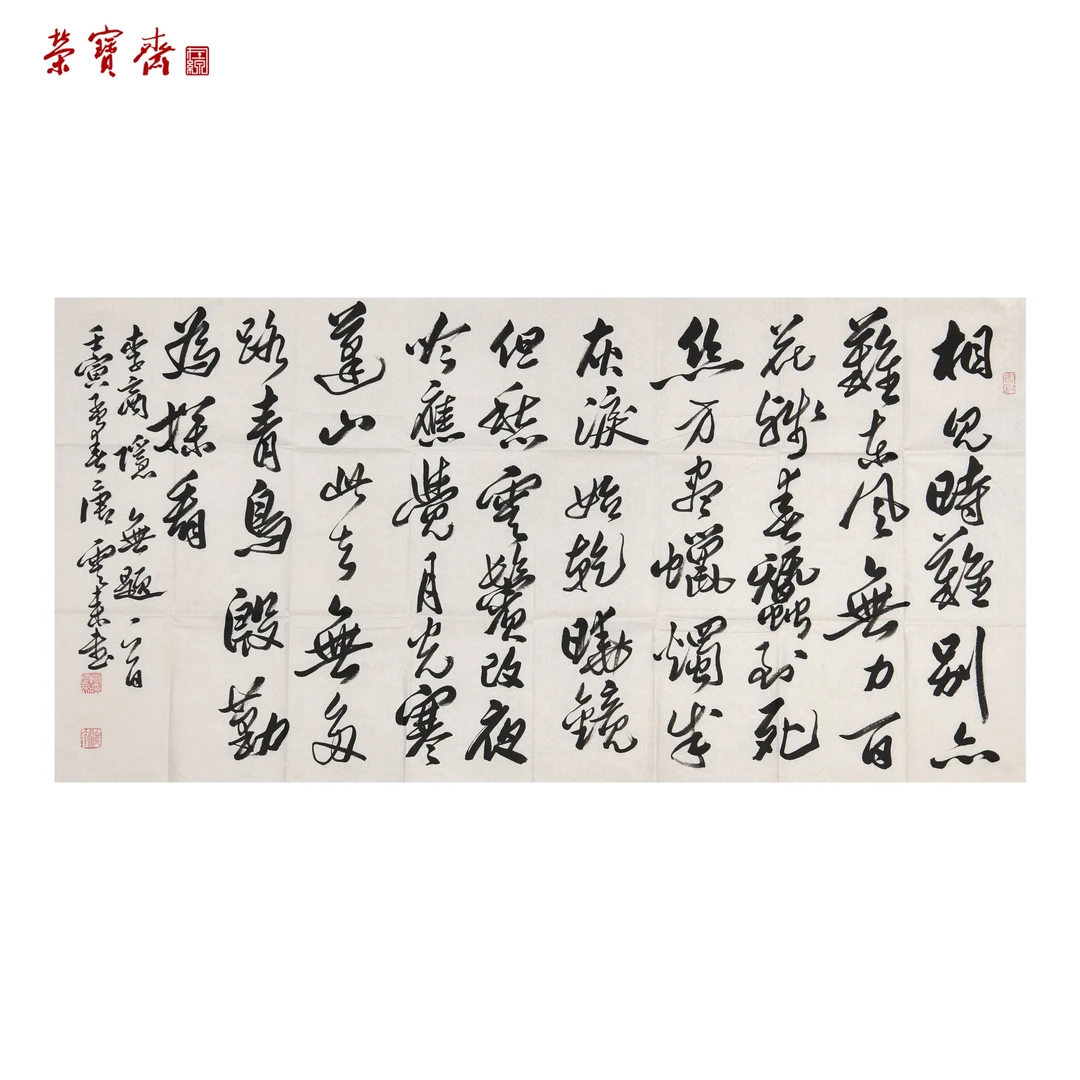 榮寶齋
相見時難別亦
難東風無力百
花殘春蠶到死
絲方盡蠟燭成
灰淚始乾曉鏡
但愁雲鬢改夜
吟應覺月光寒
蓬山此去無多
路青鳥殷勤
為探看
李商隱無題一首
壬寅孟春唐雲來書